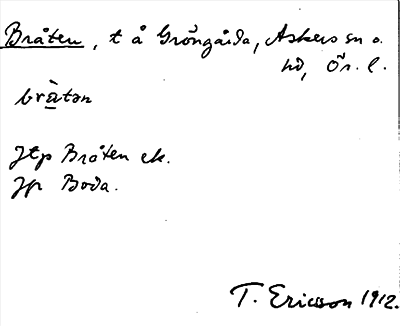 Bråten, t å Gröngårda, Askers sn o.
hd, Ör. l.
bràtən
Jtp Bråten ek.
Jp Boda.
T. Ericsson 1912.